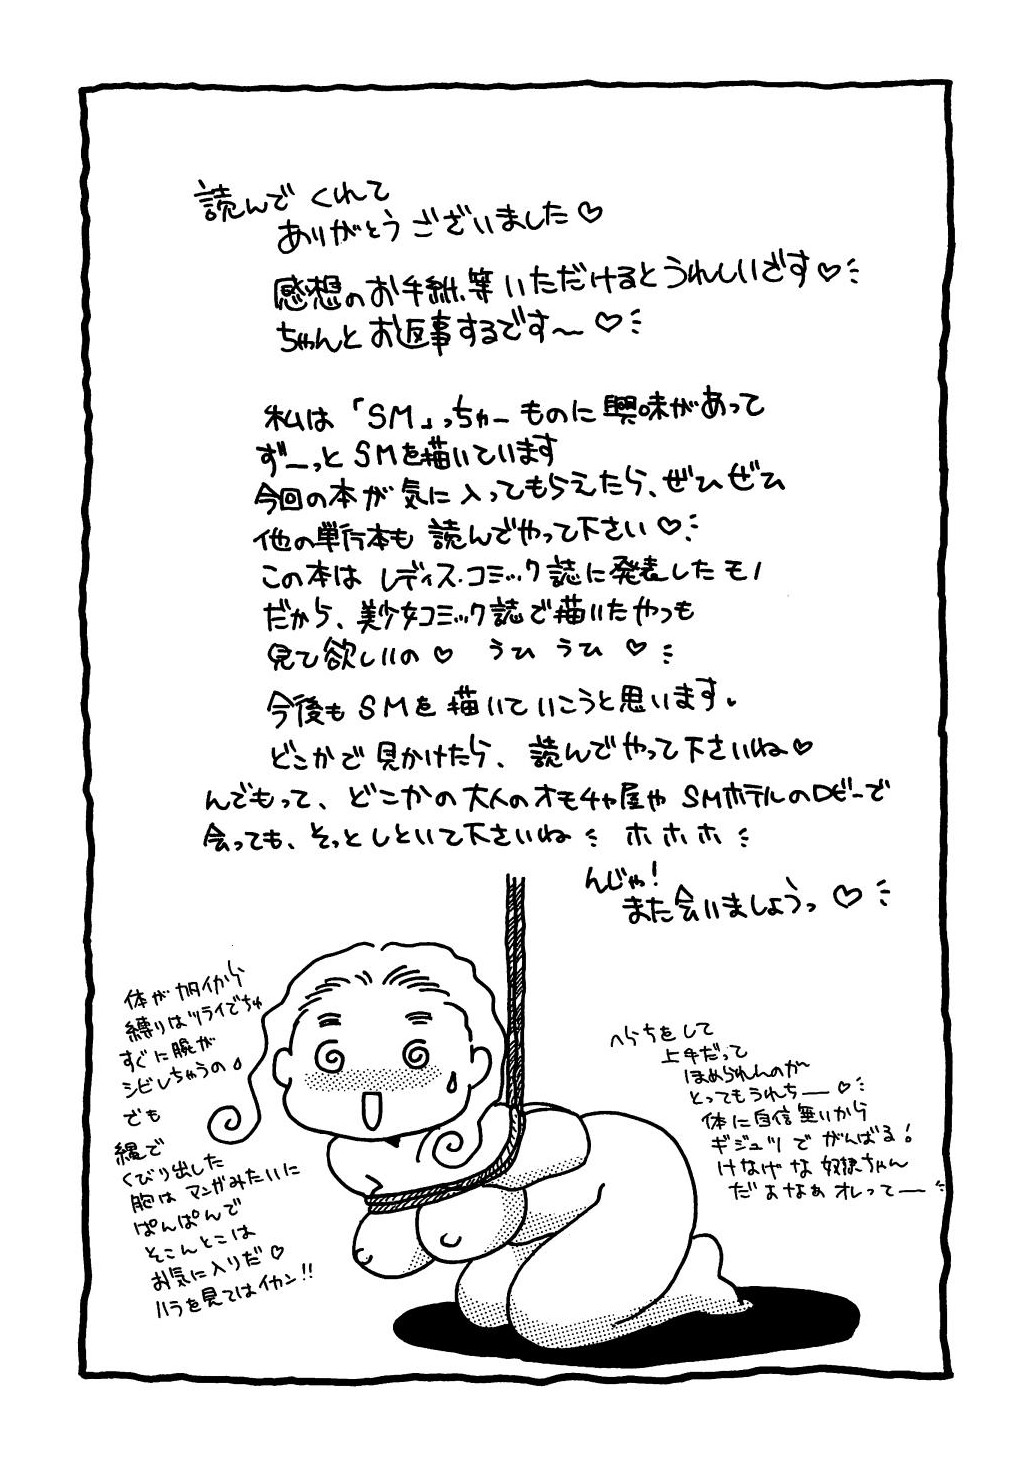 読んで くれて
ありがとう ございました♡
感想のお手紙、等 いただけるとうれしいです♡
ちゃんとお返事するです〜♡
私は「SM」っちゅーものに興味があって
ずーっとSMを描いています
今回の本が気に入ってもらえたら、ぜひぜひ
他の単行本も 読んでやって下さい♡
この本は レディス・コミック誌に発表したモノ
だから、美少女コミック誌で描いたやつも
見て欲しいの♡ うひ うひ ♡
今後もSMを描いていこうと思います。
どこかで見かけたら、読んでやって下さいね♡
んでもって、どこかの大人のオモチャ屋や SMホテルのロビーで
会っても、そっとしといて下さいね ホホホ
んじゃ!
また会いましょうっ♡
体がカタイから
縛りはツライでちゅ
すぐに腕が
シビレちゃうの
でも
縄で
くびり出した
胸は マンガみたいに
ぱんぱんで
そこんとこは
お気に入りだ♡
ハラを見てはイカン!!
へらちをして
上手だって
ほめられんのが
とってもうれちー♡
体に自信無いから
ギジュツで がんばる!
けなげな奴隷ちゃん
だよなぁ オレってー